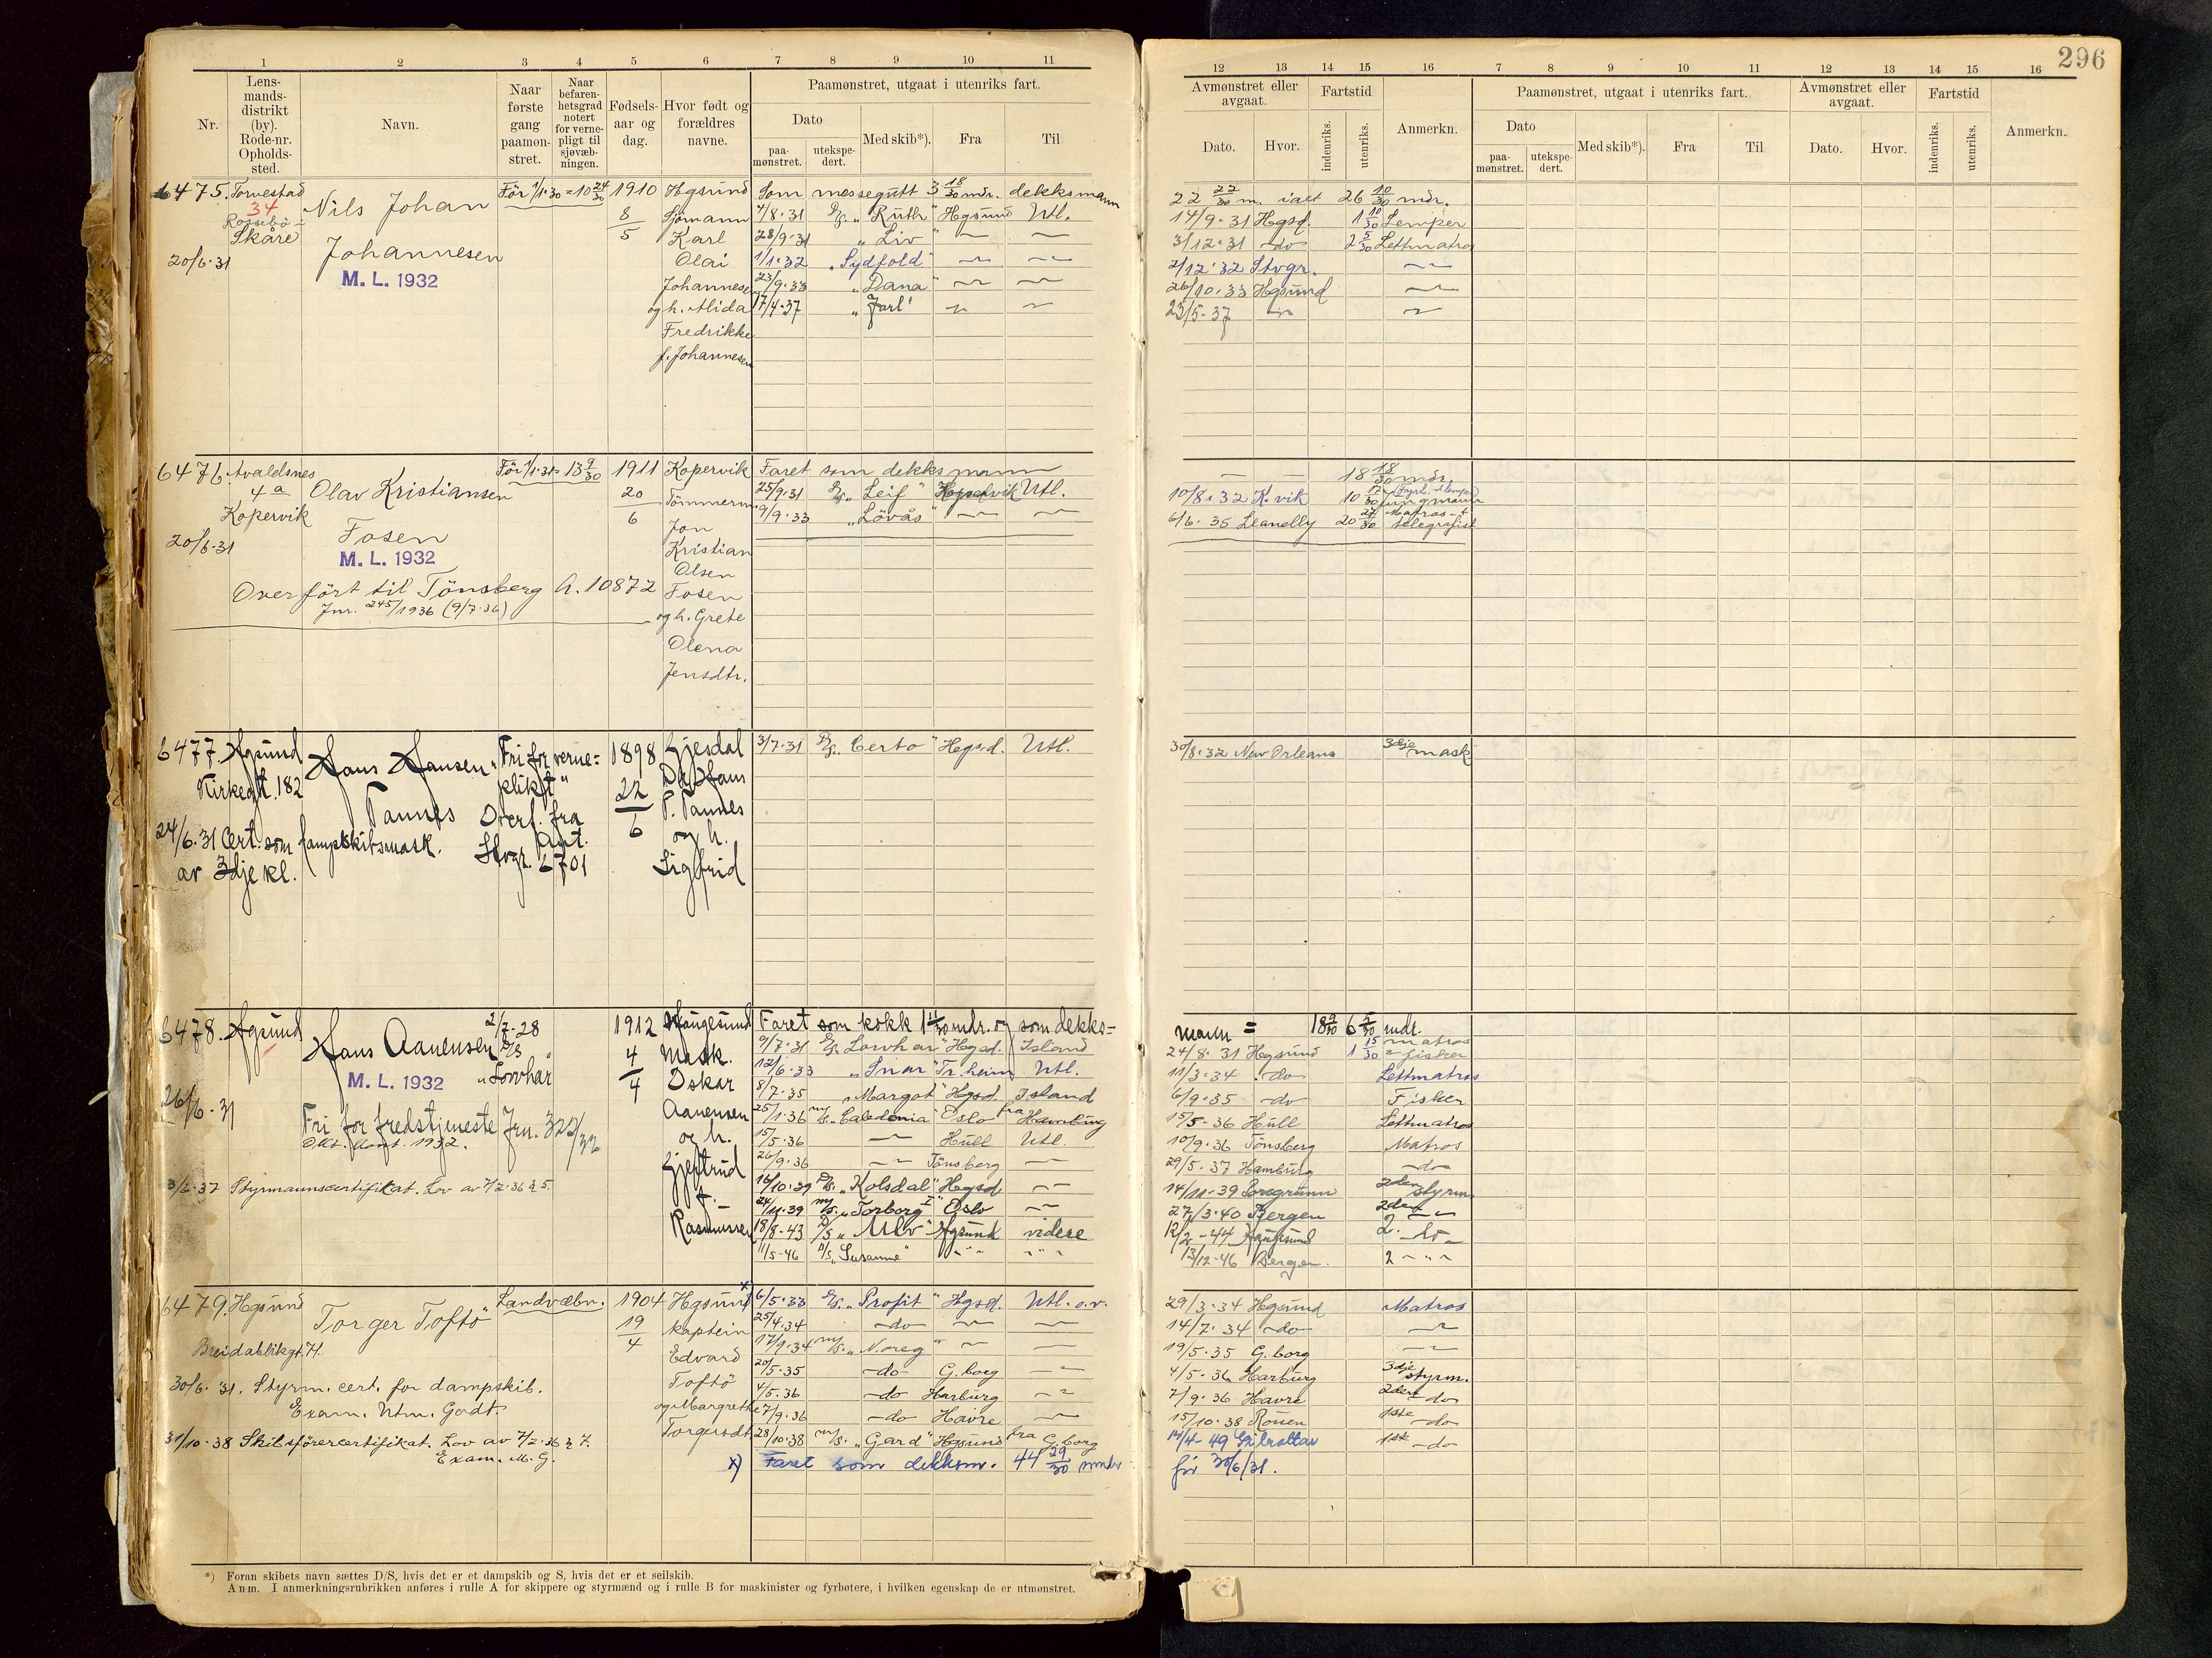 296
1 2 3 4 5 6 7 8 9 10 11
Nr.
Lens-
mands-
distrikt
(by).
Rode-nr.
Opholds-
sted.
Navn.
Naar
første
gang
paamøn-
stret.
Naar
befaren-
hetsgrad
notert
for verne-
pligt til
sjøvæb-
ningen.
Fødsels-
aar og
dag.
Hvor født og
forældres
navne.
Paamønstret, utgaat i utenriks fart.
Dato
paa-
mønstret.
utekspe-
dert.
Med skib*).
Fra
Til
12 13 14 15 16 7 8 9 10 11 12 13 14 15 16
Avmønstret eller
avgaat.
Dato.
Hvor.
Fartstid
indenriks.
utenriks.
Anmerkn.
Paamønstret, utgaat i utenriks fart.
Dato
paa-
mønstret.
utekspe-
dert.
Med skib*).
Fra
Til
Avmønstret eller
avgaat.
Dato.
Hvor.
Fartstid
indenriks.
utenriks.
Anmerkn.
6475. Torvestad
34
Rossebö-
Skåre
20/6-31
Nils Johan
Johannesen
M. L. 1932
Før 1/1-30 = 10 24/30
1910
8/5
Hgsund
Sjömann
Karl
Olai
Johannesen
og h. Alida
Fredrikke
f. Johannesen
Som messegutt 3 18/30 mdr. dekksmann
22 22/30 m. ialt 26 10/30 mdr.
4/8.31 D/S. "Ruth" Hgsund Utl.
14/9.31 Hgsd. 1 10/30 Lemper
28/9.31 "Liv" — —
3/12.31 -do- 2 5/30 Lettmatros
1/1.32 "Sydfold" — —
2/12.32 Stvgr. —
23/9.33 "Dana" — —
26/10.33 Hgsund —
17/4.37 "Jarl" — —
23/5-37 — —
6476. Avaldsnes
4a
Kopervik
20/6-31
Olav Kristiansen
Fosen
M. L. 1932
Overført til Tönsberg A. 10872
Jnr. 245/1936 (9/7-36)
Før 1/1-31 = 13 9/30
1911
20/6
Kopervik
Tömmerm.
Jon
Kristian
Olsen
Fosen
og h. Grete
Olena
Jensdtr.
Faret som dekksmann
— — 18 18/30 mdr.
25/9.31 D/S. "Leif" Utl.
10/8.32 K.vik
9/9.33 "Lövås" — —
6/6.35 Llanelly 20 27/30 Matros + telegrafist
6477. Hgsund
Kirkegt. 182
Hans Hansen
Tannes
"Fri for verne-
plikt"
Overf. fra
Stvgr. Ant. 6701
24/6.31 Cert. som dampskibsmask.
av 3dje kl.
1898
22/6
Gjesdal
Hans
P. Tannes
og h.
Sigfrid
3/7.31 D/S. "Certo" Hgsd. Utl.
30/8.32 New Orleans 3dje mask
6478. Hgsund
26/6-31
Hans Aanensen
M. L. 1932
2/7-28
D/S
"Lovhar"
Fri for fredstjeneste Jrn. 325/32
Okt. kont. 1932.
3/6-37 Styrmannscertifikat. Lov av 7/2-36 § 5.
1912
4/4
Haugesund
Mask.
Oskar
Aanensen
og h.
Gjertrud
f.
Rasmussen
Faret som kokk 1 11/30 mdr. og som dekks-
mann = 18 9/30 6 5/30 mdr.
9/7.31 D/S. Lovhar" Hgsd. Island
24/8.31 Hgsund 1 15/30 matros = fisker
12/6-33 Tr.heim Utl.
11/3.34 -do- Lettmatros
8/7.35 "Margot" Hgsd. Island
6/9.35 -do- Fisker
25/1.36 M/S. "Caledonia" Oslo fra Hamburg
15/5-36 Hull Lettmatros
15/5-36 — Hull Utl.
10/9.36 Tönsberg Matros
26/9.36 — Tönsberg —
29/5.37 Hamburg -do-
16/10.39 D/S. "Kolsdal" Hgsd —
14/11-39 Porsgrunn 2den styrm
24/11.39 M/S. "Torborg" Oslo —
27/3.40 Bergen 2den —
18/8-43 D/S "Ulv" Hgsund videre
12/2-44 Haugesund 2. -do-
11/5-46 D/S. "Susanne" — —
13/12-46 Bergen. 2 —
6479. Hgsund
Breidablikgt. H.
Torger Toftö
Landvæbn.
1904
19/4
Hgsund
kaptein
Edvard
Toftö
og Margrethe
Torgersdt
30/6.31. Styrm. cert. for dampskib.
Exam. Utm. Godt.
31/10-38 Skibsförercertifikat. Lov av 7/2-36 § 7.
Exam. M. G.
x) 6/5.33 D/S. "Profit" Hgsd. Utl. o.v.
29/3.34 Hgsund Matros
25/4.34 -do- — —
14/7.34 -do- —
17/9.34 M/S. "Noreg" — —
19/5.35 G.borg —
20/5.35 -do- G.borg —
4/5.36 Harburg 3dje styrm.
4/5.36 -do- Harburg —
7/9.36 Havre 2den -do-
7/9.36 -do- Havre —
15/10.38 Rouen 1ste -do-
28/10.38 M/S. "Gard" Hgsund fra G.borg
14/4-49 Gibraltar 1ste -do-
x) Faret som dekksm. 44 29/30 mndr
før 30/6/31.
*) Foran skibets navn sættes D/S, hvis det er et dampskib og S, hvis det er et seilskib.
Anm. I anmerkningsrubrikken anføres i rulle A for skippere og styrmænd og i rulle B for maskinister og fyrbøtere, i hvilken egenskap de er utmønstret.